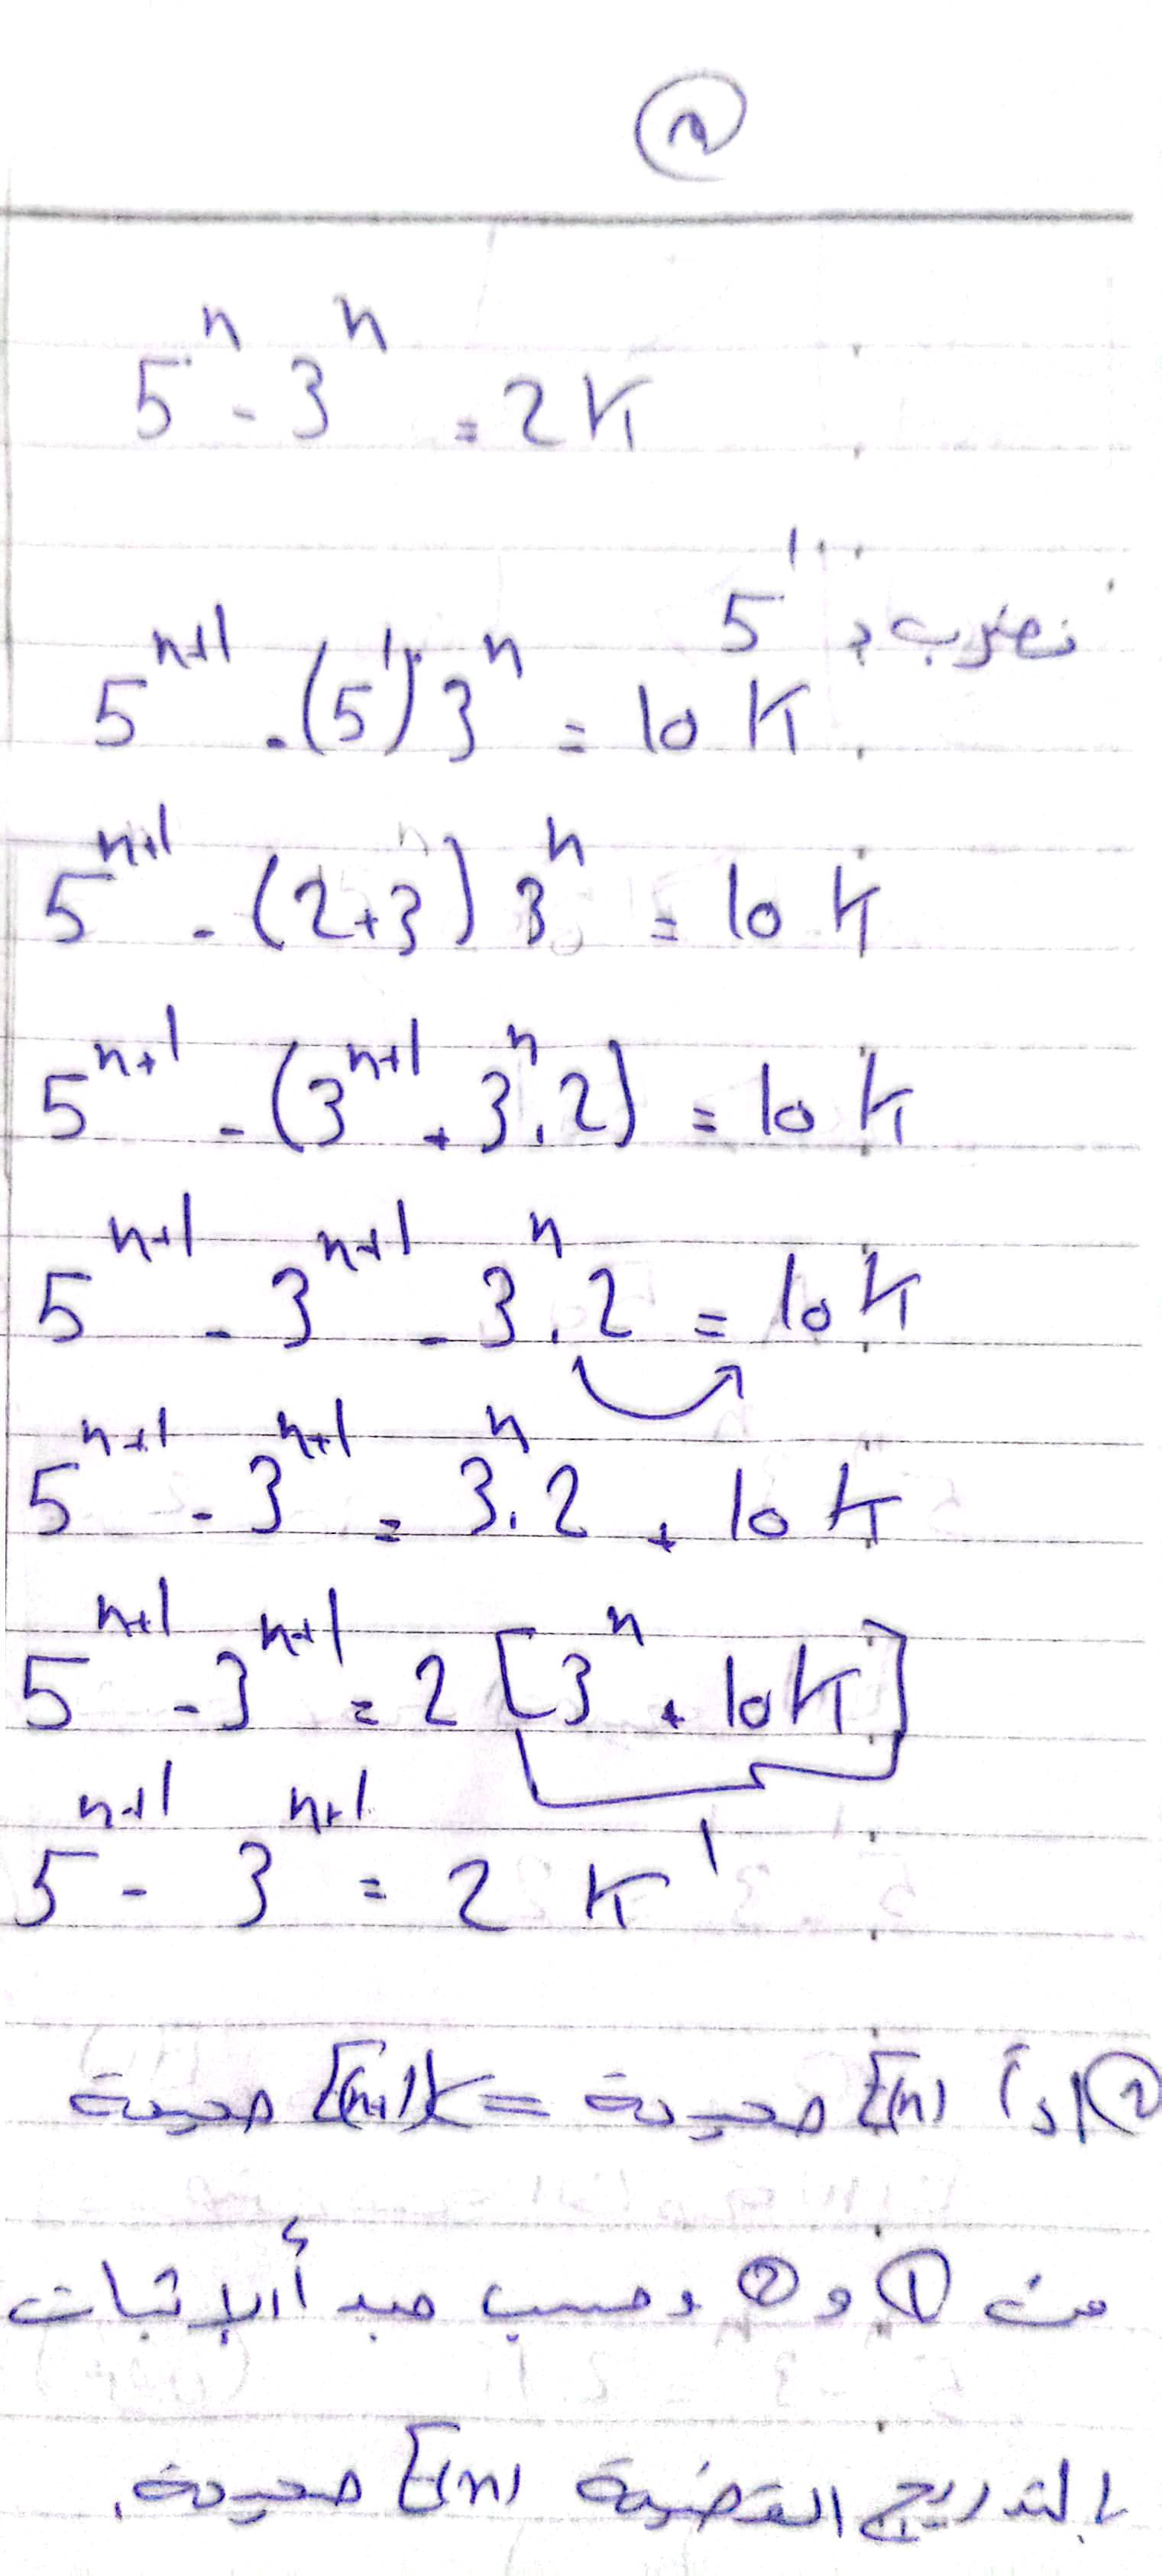 ②
5ⁿ - 3ⁿ = 2K
نضرب بـ 5¹
5ⁿ⁺¹ - (5¹) 3ⁿ = 10 K
5ⁿ⁺¹ - (2+3) 3ⁿ = 10 K
5ⁿ⁺¹ - (3ⁿ⁺¹ + 3ⁿ.2) = 10 K
5ⁿ⁺¹ - 3ⁿ⁺¹ - 3ⁿ.2 = 10 K
5ⁿ⁺¹ - 3ⁿ⁺¹ = 3ⁿ.2 + 10 K
5ⁿ⁺¹ - 3ⁿ⁺¹ = 2 [3ⁿ + 10K]
5ⁿ⁺¹ - 3ⁿ⁺¹ = 2 K'
② إذاً E(n) صحيحة => E(n+1) صحيحة
من ① و ② وحسب مبدأ الإثبات
بالتدريج القضية E(n) صحيحة.